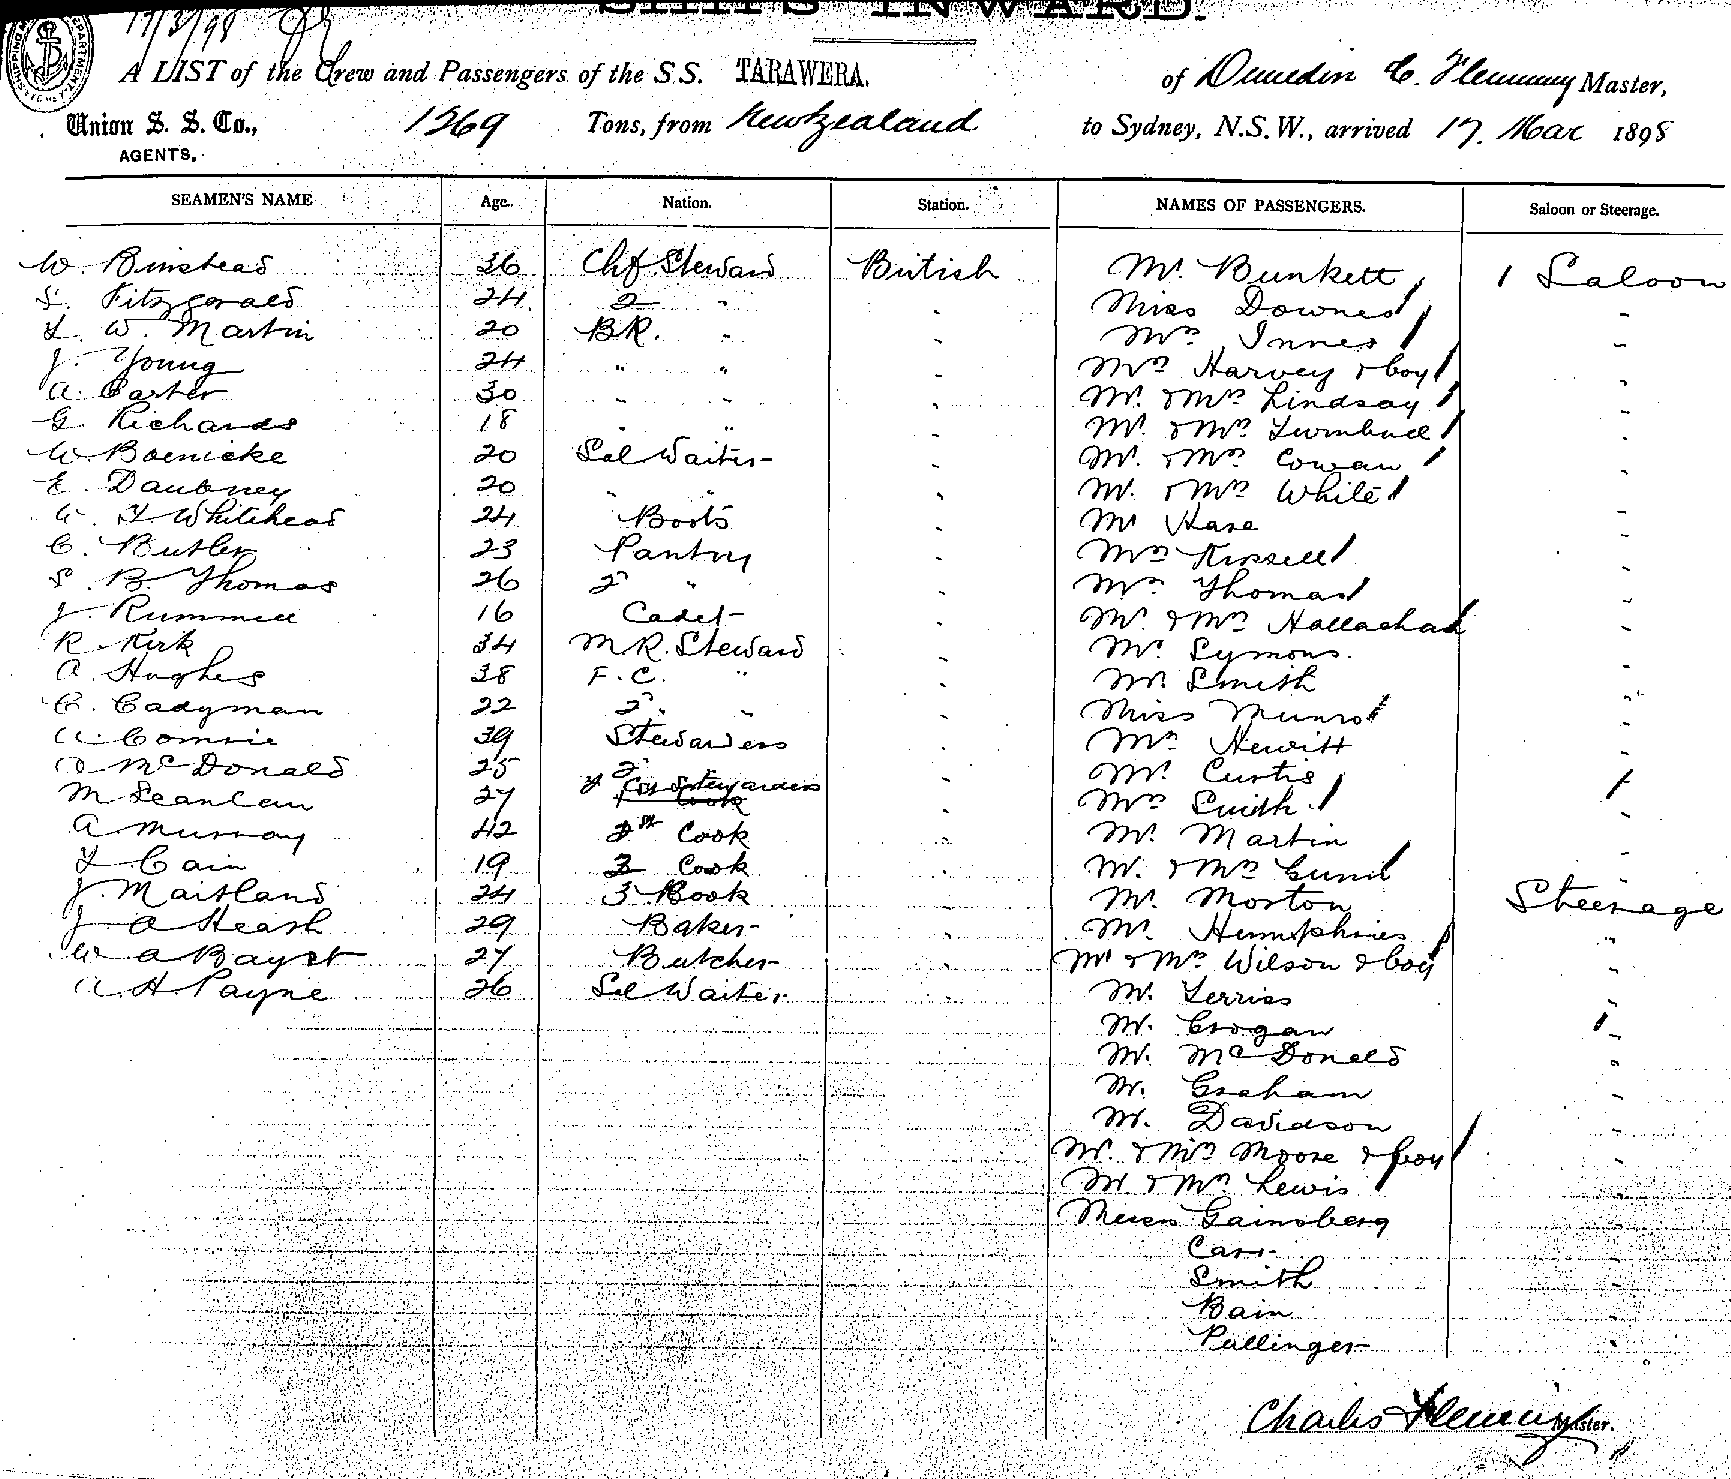 SHIPS INWARD.
17/3/98
A LIST of the Crew and Passengers of the S.S. TARAWERA. of Dunedin C. Flemming Master,
Union S. S. Co., 1269 Tons, from New Zealand to Sydney, N.S.W., arrived 17. Mar 1898
AGENTS,
SEAMEN'S NAME Age. Nation. Station. NAMES OF PASSENGERS. Saloon or Steerage.
W. Binstead 36 Chf Steward British Mr. Bunkett 1 Saloon
S. Fitzgerald 24 2 " " Miss Downes "
L. W. Martin 20 BR. " " Mrs Innes "
J. Young 24 " " " Mrs Harvey & boy "
A. Carter 30 " " " Mr. & Mrs Lindsay "
G. Richards 18 " " " Mr. & Mrs Turnbull "
W. Boenicke 20 Sal Waiter " Mr. & Mrs Cowan "
E. Daubney 20 " " " Mr. & Mrs White "
Whitehead 24 Boots " Mr Hare "
C. Butler 23 Pantry " Mrs Kissell "
S. B. Thomas 26 2 " " Mrs Thomas "
J. Rummell 16 Cadet " Mr. & Mrs Hallachan "
R. Kirk 34 M R. Steward " Mr. Symons. "
A. Hughes 38 F. C. " " Mr. Smith "
C. Cadyman 22 2 " " Miss Munro "
Comrie 39 Stewardess " Mr Hewitt "
McDonald 25 2 " " Mr. Curtis "
M Scanlan 27 Stewardess Cook " Mrs Smith "
A Murray 42 Cook " Mr. Martin "
Cain 19 2 Cook " Mr. & Mrs Gunn "
J. Maitland 24 3 Book " Mr. Morton Steerage
J A Heash 29 Baker " Mr. Humphries "
W A Bayst 27 Butcher " Mr & Mrs Wilson & boy "
A. H. Payne 26 Sal Waiter " Mr. Terriss "
Mr. Crogan "
Mr. McDonald "
Mr. Graham "
Mr. Davidson "
Mr. & Mrs Moore & boy "
Mr & Mrs Lewis "
Messrs Gainsberg "
Carr "
Smith "
Bain "
Pallinger "
Charles Flemming Master.